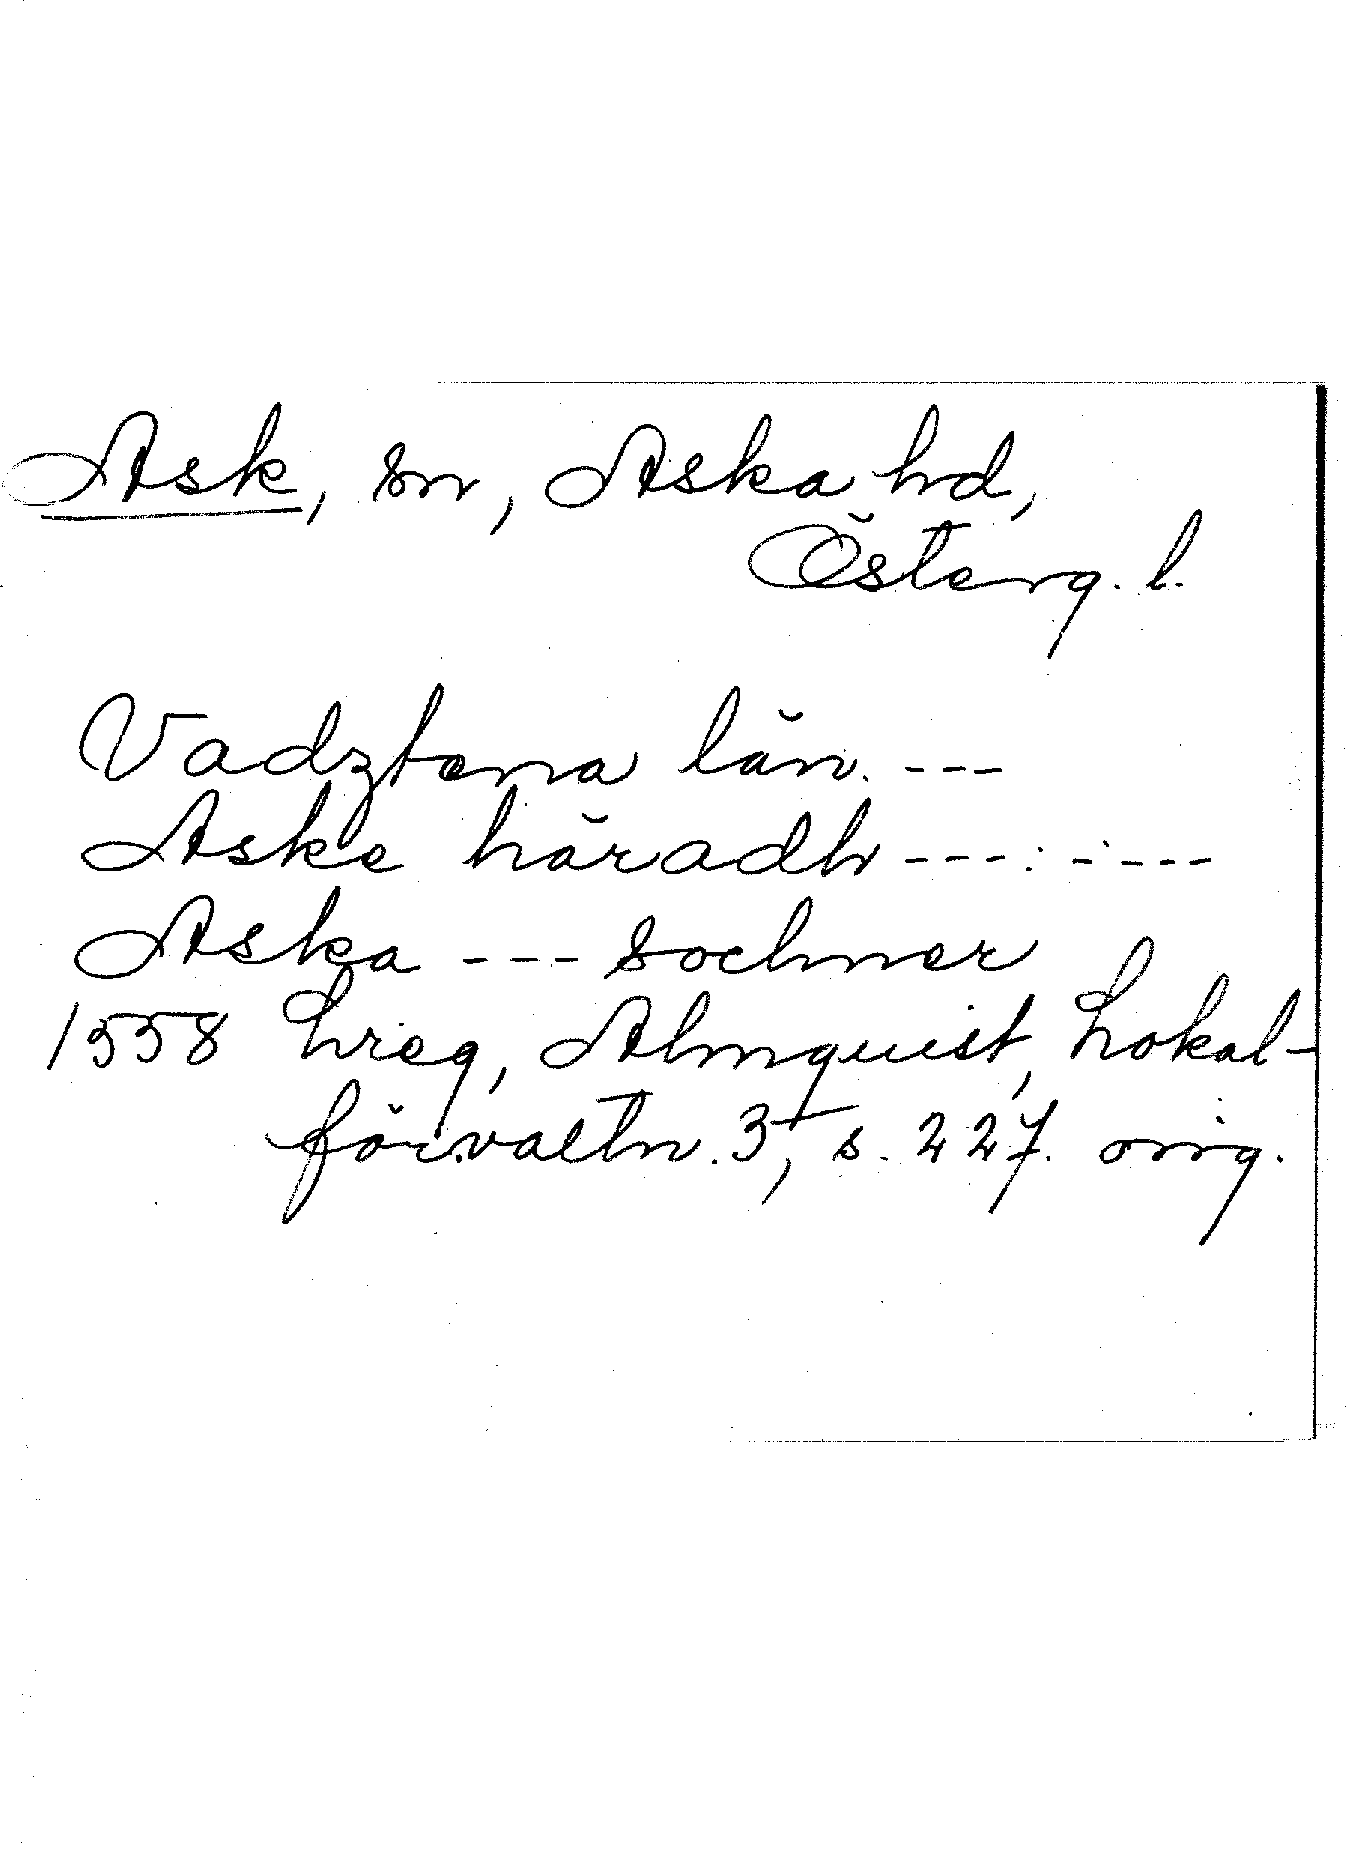 Ask, sn, Aska hd,
Österg. l.
Vadztena län. ---
Aske häradh --- : - - - -
Aska --- sochner
1558 Lreg, Almquist, Lokal-
förvaltn. 3, s. 227. orig.